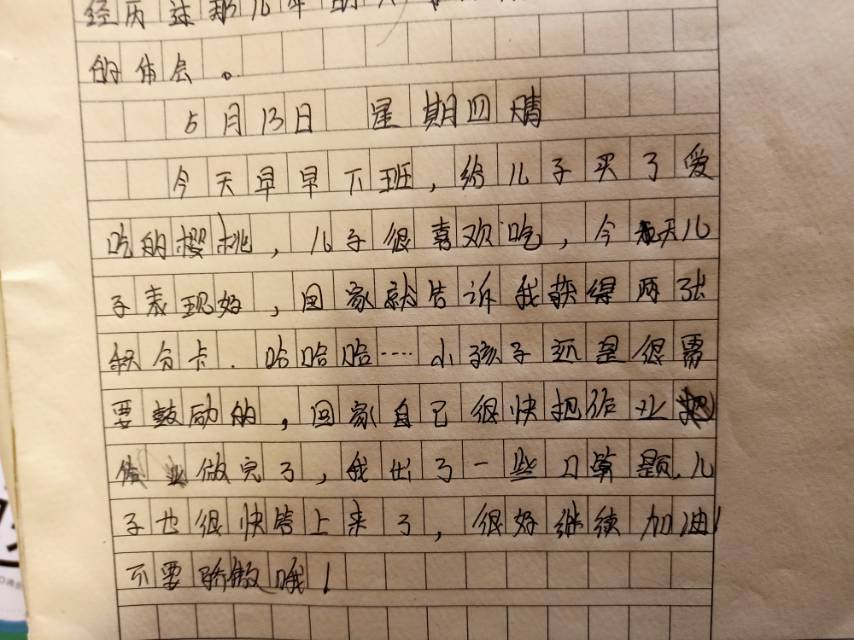 经历过那几年的
的体会。
5月13日 星期四 晴
今天早早下班，给儿子买了爱
吃的樱桃，儿子很喜欢吃，今天儿
子表现好，回家就告诉我获得两张
积分卡．哈哈哈……小孩子还是很需
要鼓励的，回家自己很快把作业
做完了，我出了一些口算题，儿
子也很快答上来了，很好继续加油！
不要骄傲哦！